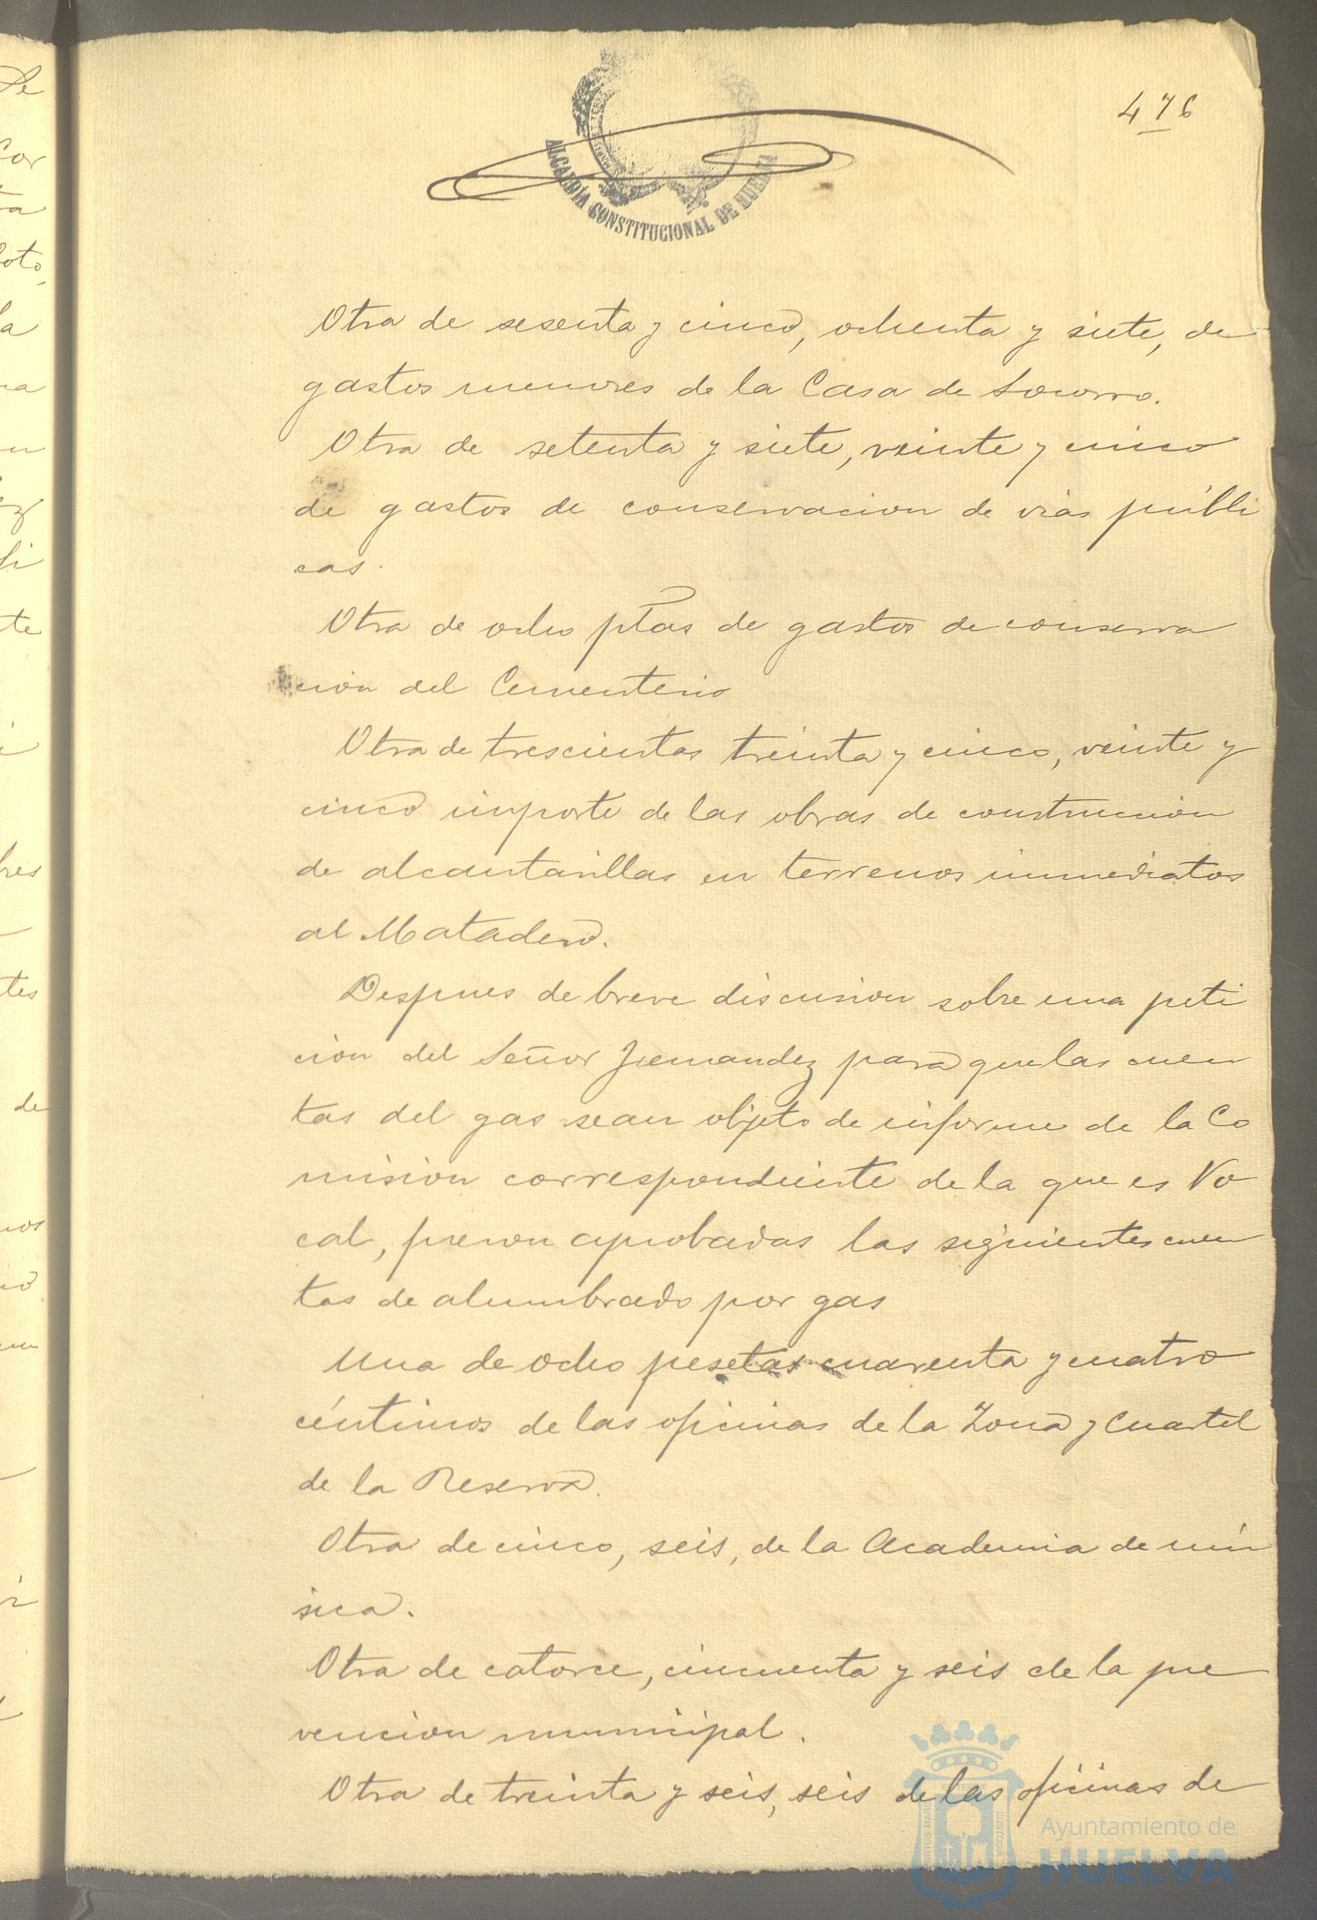 476
ALCALDÍA CONSTITUCIONAL DE HUELVA
Otra de sesenta y cinco, ochenta y siete, de
gastos menores de la Casa de Socorro.
Otra de setenta y siete, veinte y cinco
de gastos de conservacion de vias públi
cas.
Otra de ocho ptas de gastos de conserva
cion del Cementerio
Otra de trescientas treinta y cinco, veinte y
cinco importe de las obras de construccion
de alcantarillas en terrenos inmediatos
al Matadero.
Despues de breve discusion sobre una peti
cion del Señor Fernandez para que las cuen
tas del gas sean objeto de informe de la Co
mision correspondiente de la que es Vo
cal, fueron aprobadas las siguientes cuen
tas de alumbrado por gas
Una de ocho pesetas cuarenta y cuatro
céntimos de las oficinas de la Zona y Cuartel
de la Reserva.
Otra de cinco, seis, de la Academia de mú
sica.
Otra de catorce, cincuenta y seis de la pre
vencion municipal.
Otra de treinta y seis, seis de las oficinas de
Ayuntamiento de
HUELVA
De
cor
ra
oto,
la
na
te
hes
tes
de
nos